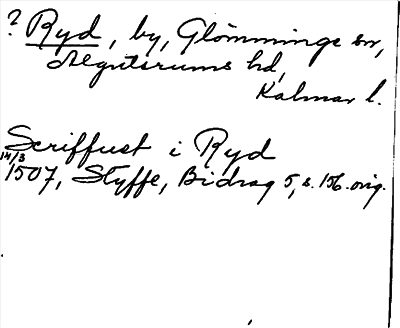 ? Ryd, by, Glömminge sn,
Algutsrums hd,
Kalmar l.
Scriffust i Ryd
14/3
1507, Styffe, Bidrag 5, s. 156. orig.